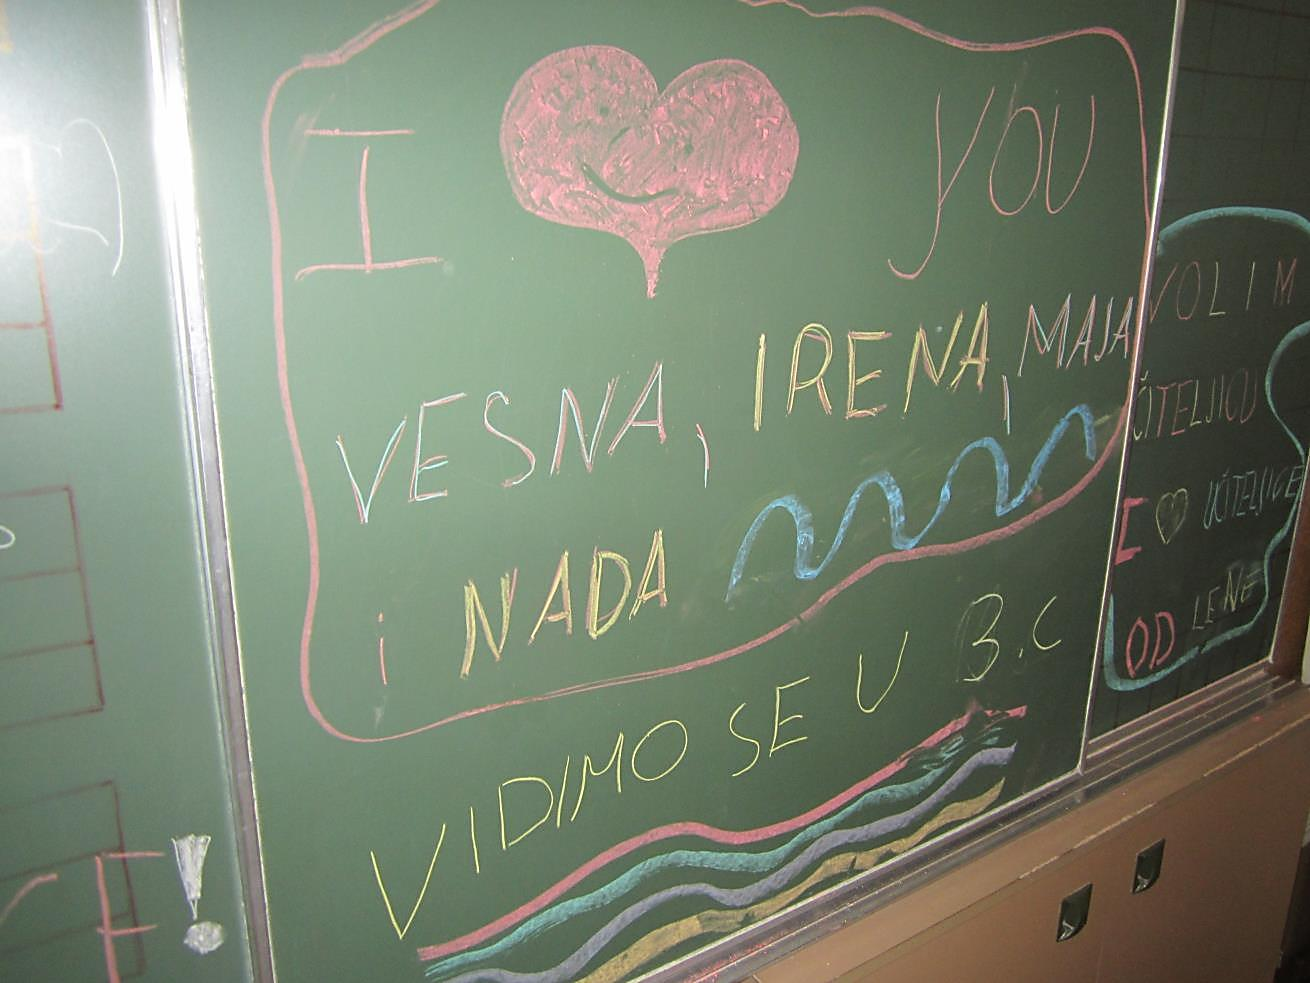 I YOU
VESNA, IRENA, MAJA
i NADA
VIDIMO SE U B.C
VOLIM
UČITELJICU
I UČITELJICE
OD LENE
E!